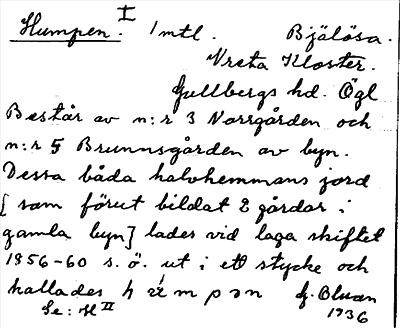 Humpen. I 1 mtl. Bjälösa.
Vreta Kloster.
Gullbergs hd. Ögl
Består av n:r 3 Norrgården och
n:r 5 Brunnsgården av byn.
Dessa båda halvhemmans jord
[som förut bildat 2 gårdar i
gamla byn] lades vid laga skiftet
1856-60 s. ö. ut i ett stycke och
kallades
Se: H II 1936